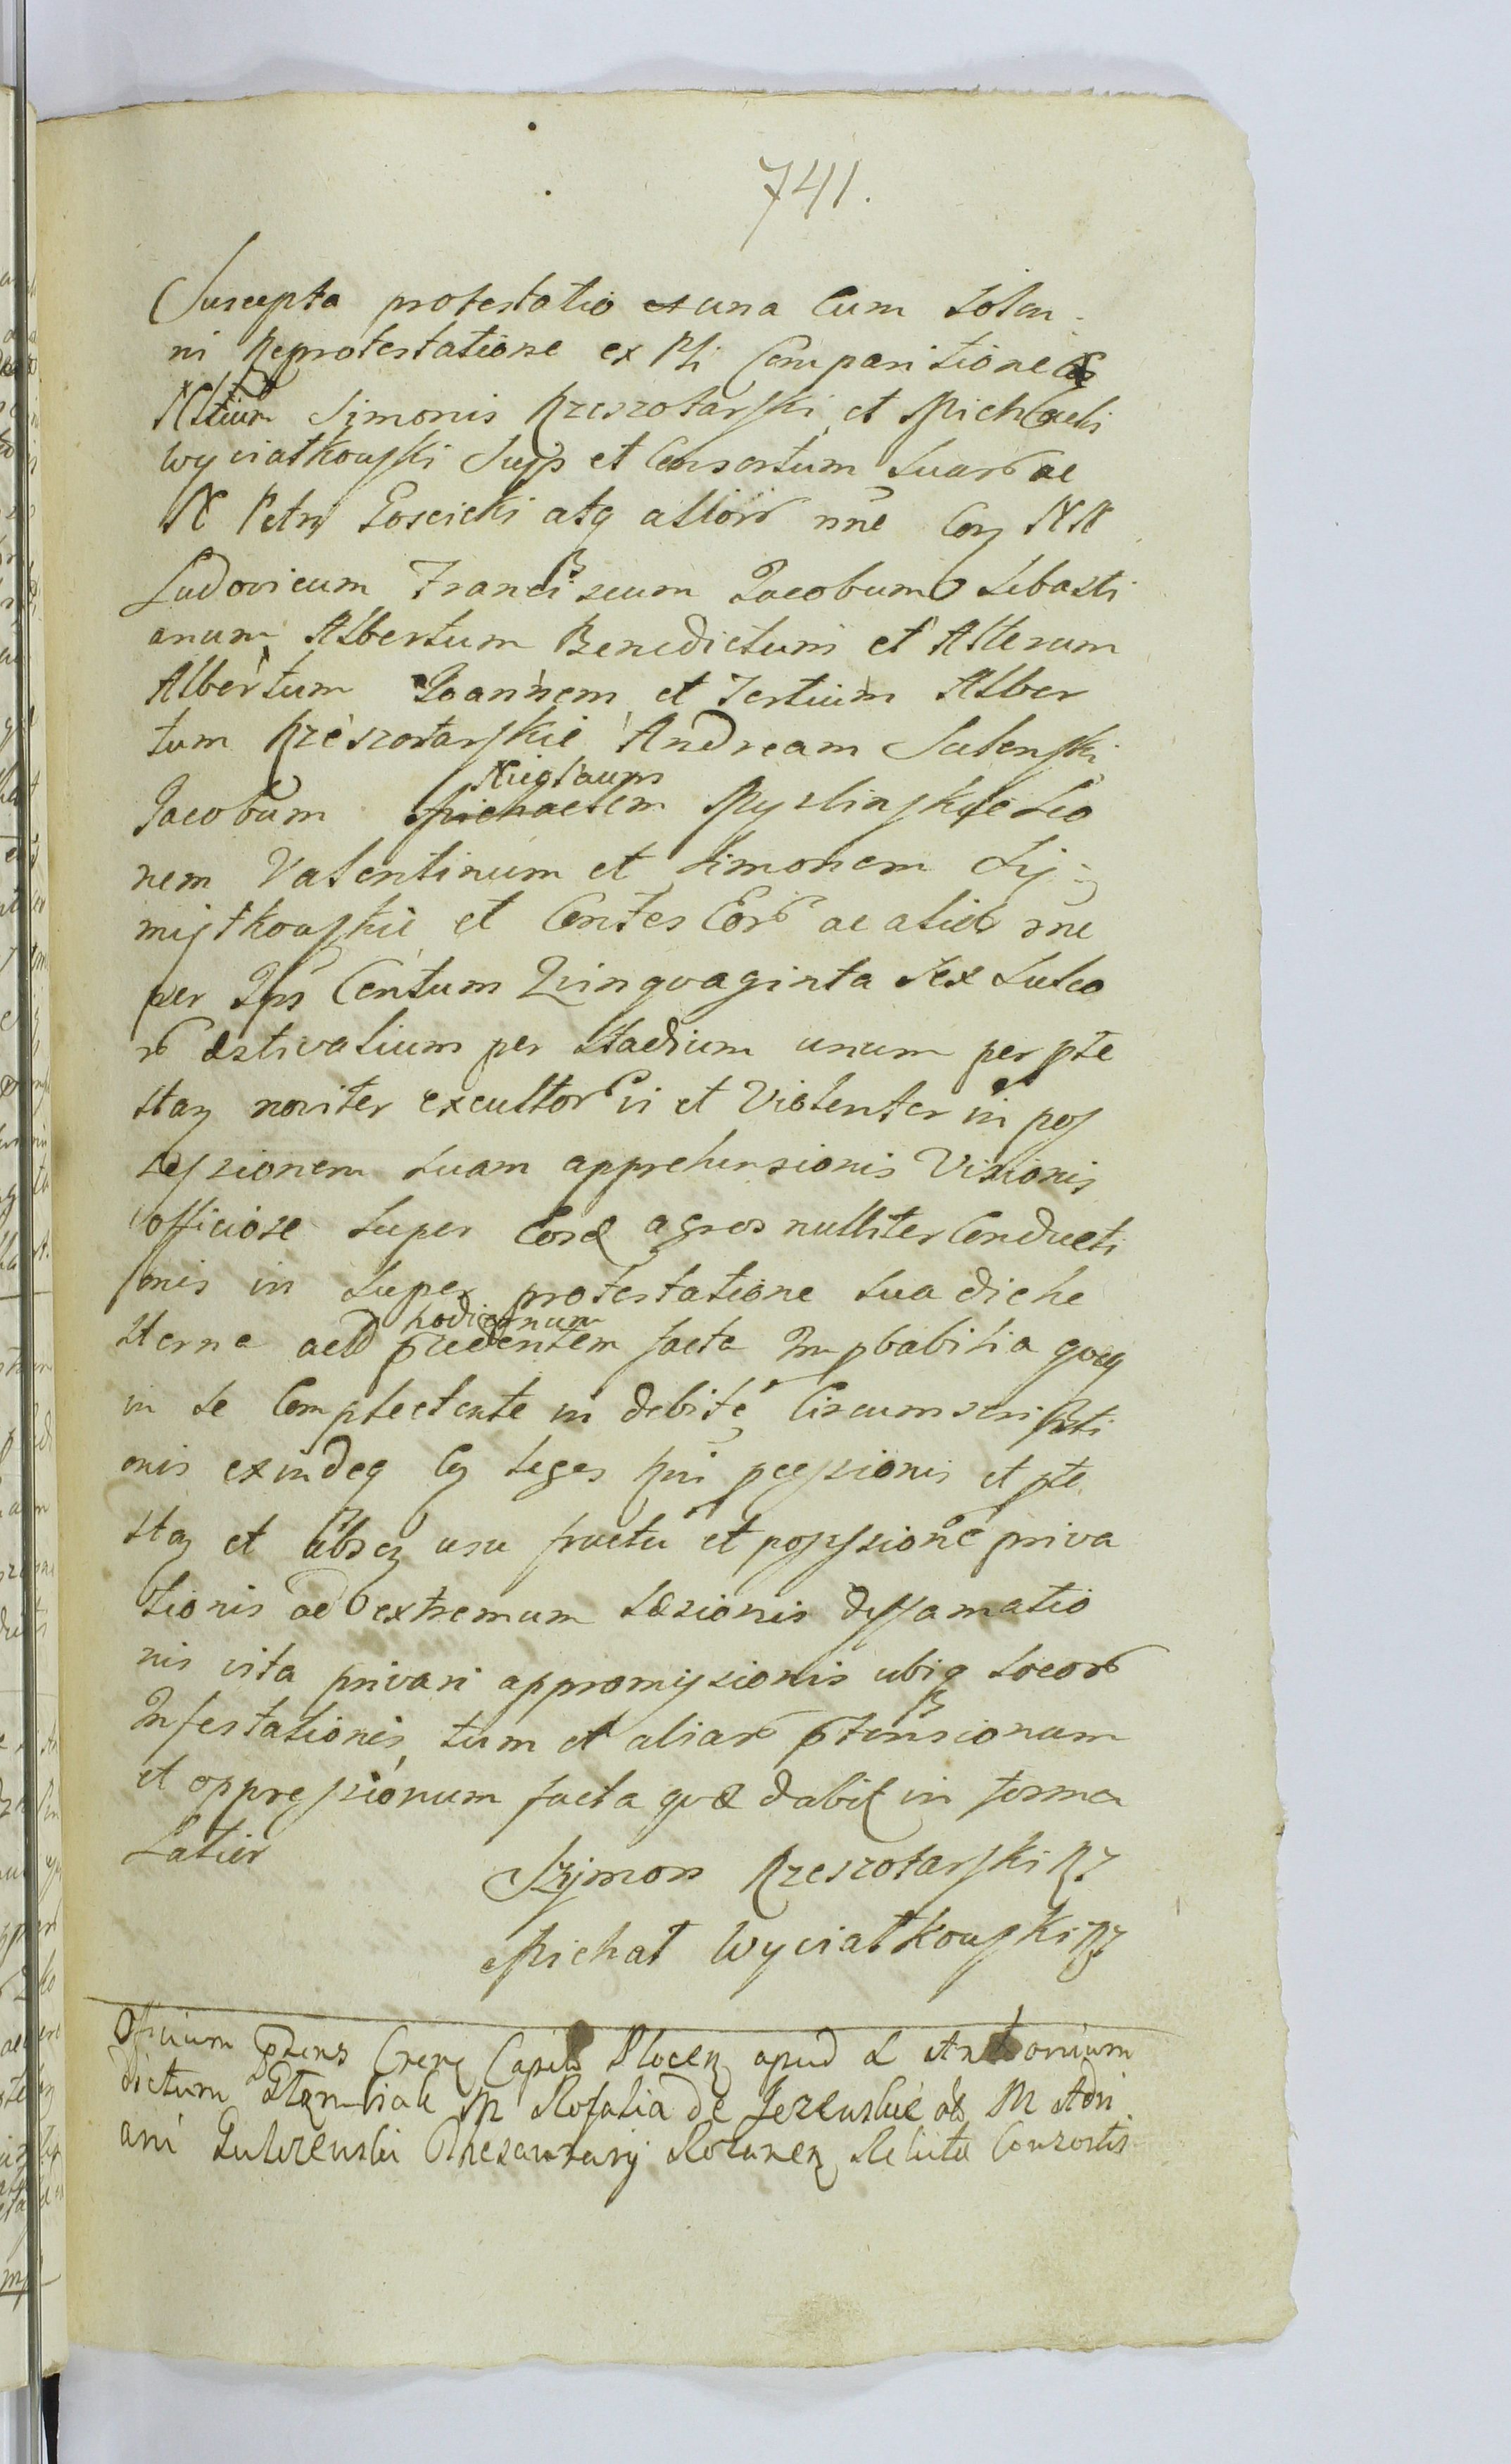 741.
Suscepta protestatio et una Cum Solen
ni Reprotestatione ex Psli Comparitione
Nltium Simonis Rzeszotarski et Michaeli
Wyciatkowski Suis et Consortum Suar ac
N Petri Goscicki atq alior nne Con NN
Ludovicum Franciscum Jacobum Sebasti
anum Albertum Benedictum et Alterum
Albertum Joannem et Tertium Alber
tum Rzeszotarskie Andream Sulenski
Jacobum Michaelem Myslinskie Leo
nem Valentinum et Simonem Sy
mistkowskie et Contes Eor ac alior nne
per Ips Centum Qvinqvaginta Sex Sulco
r Æstivalium per Stadium unum per pte
stan noviter excultor vi et Violenter in pos
sessionem suam apprehensionis Visionis
officiose super Eosd agros nulliter Conducti
onis in super protestatione sua die he
sterna ad hodiernum facta Improbabilia qvæq
in se Complectente in debite Circumscripti
onis exindeq Con Leges pcessionis et pte
stan et absq usu fructu et possessione priva
tionis ad extremum Læsionis diffamatio
nis vita privari appromissionis ubiq Locor
Infestationis tum et aliar ptensionum
et oppressionum facta qvæ dabit in forma
Latior
Szymon Rzeszotarski
Michał Wyciatkowski
Officium pnens Crene Capit Plocen apud L Antonium
dictum M Rosalia de Jezewskie M Adri
ani Thesaurarij Relicta Consortis